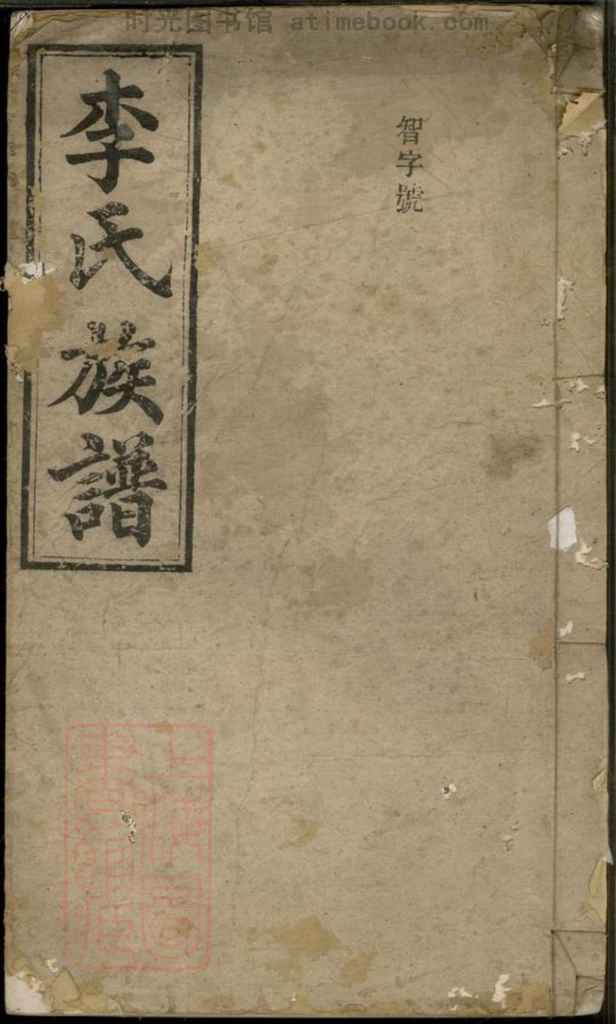 时光图书馆 atimebook.com
智字號
李氏族譜